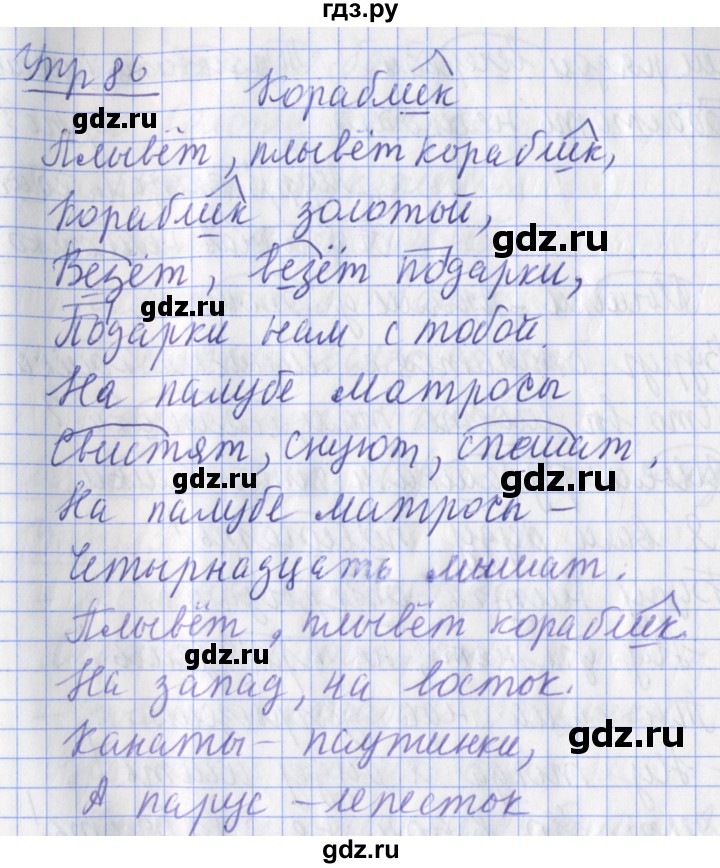 гдз.ру
Упр 86
Кораблик
Плывёт, плывёт кораблик,
Кораблик золотой,
Везёт, везёт подарки,
Подарки нам с тобой.
На палубе матросы
Свистят, снуют, спешат,
На палубе матросы –
Четырнадцать мышат.
Плывёт, плывёт кораблик
На запад, на восток.
Канаты – паутинки,
А парус – лепесток
gdz.ru
gdz.ru
gdz.ru
gdz.ru
gdz.ru
gdz.ru
gdz.ru
gdz.ru